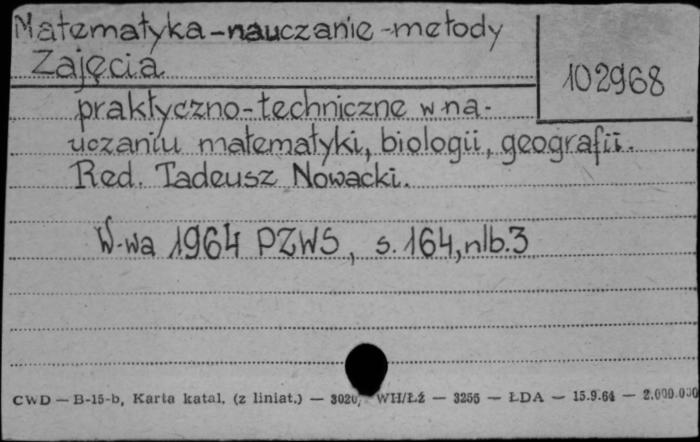 Matematyka-nauczanie-metody
Zajęcia
102968
praktyczno-techniczne w na-
uczaniu matematyki, biologii, geografii.
Red. Tadeusz Nowacki.
W-wa 1964 PZWS, s. 164, nlb. 3
CWD — B-15-b, Karta katal. (z liniat.) — 3020, WH/Łź — 3256 — ŁDA — 15.9.64 — 2.000.000